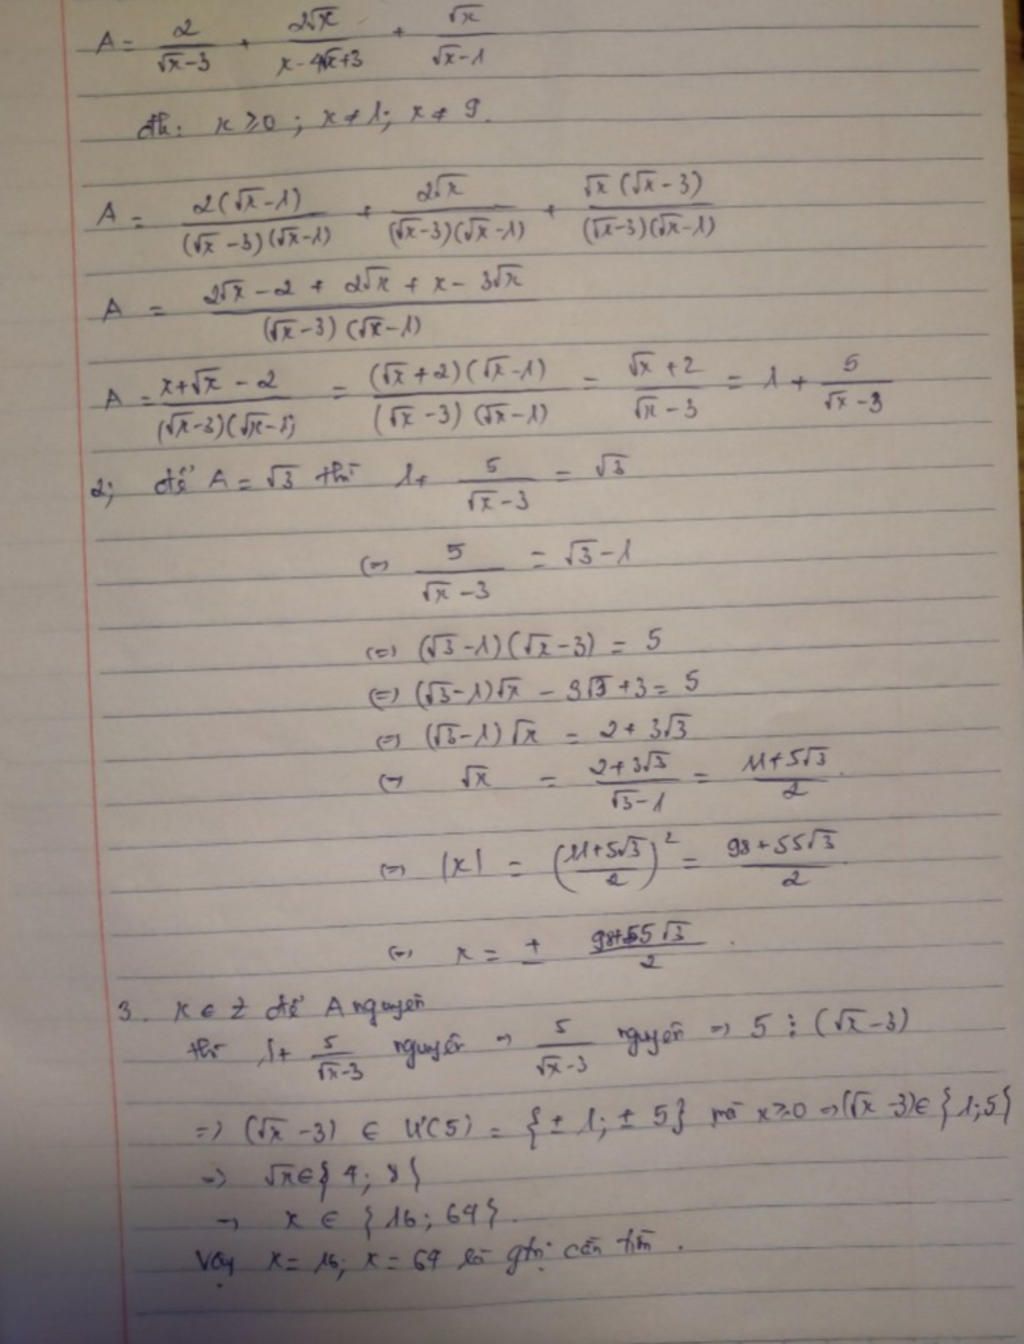 A = 2/(√x-3) + 2√x/(x-4√x+3) + √x/(√x-1)
đk: x ≥ 0 ; x ≠ 1; x ≠ 9.
A = 2(√x-1)/((√x-3)(√x-1)) + 2√x/((√x-3)(√x-1)) + √x(√x-3)/((√x-3)(√x-1))
A = (2√x - 2 + 2√x + x - 3√x)/((√x-3)(√x-1))
A = (x+√x-2)/((√x-3)(√x-1)) = (√x+2)(√x-1)/((√x-3)(√x-1)) = (√x+2)/(√x-3) = 1 + 5/(√x-3)
2; để A = √3 thì 1 + 5/(√x-3) = √3
(=) 5/(√x-3) = √3-1
(=) (√3-1)(√x-3) = 5
(=) (√3-1)√x - 3√3 + 3 = 5
(=) (√3-1)√x = 2+3√3
(=) √x = (2+3√3)/(√3-1) = (11+5√3)/2.
(=) |x| = ((11+5√3)/2)² = (98+55√3)/2
(=) x = ± (98+55√3)/2.
3. x ∈ Z để A nguyên
thì 1 + 5/(√x-3) nguyên => 5/(√x-3) nguyên => 5 ⋮ (√x-3)
=> (√x-3) ∈ Ư(5) = {±1; ±5} mà x ≥ 0 => (√x-3) ∈ {1;5}
=> √x ∈ {4; 8}
=> x ∈ {16; 64}.
Vậy x = 16; x = 64 là gtrị cần tìm.